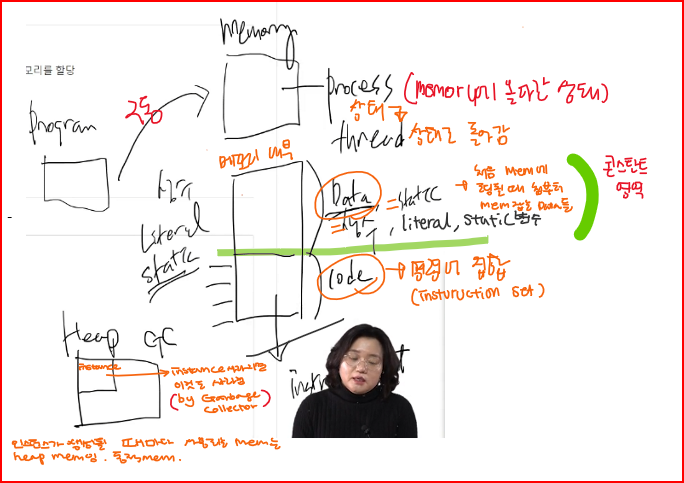 Memory
모리를 할당
process (memory에 올라간 상태)
구동
상태로
Program
thread 상태로 돌아감
메모리 내부
콘스탄트
영역
상수
Data = static
처음 mem에
= 상수, literal, static 변수
Literal
static
code → 명령어 집합
(insturuction set)
Heap GC
instance
instance 사라지면
이것도 사라짐
(by Garbage
Collector)
인스턴스가 생성될 때마다 사용되는 mem는
heap mem임. 동적mem.